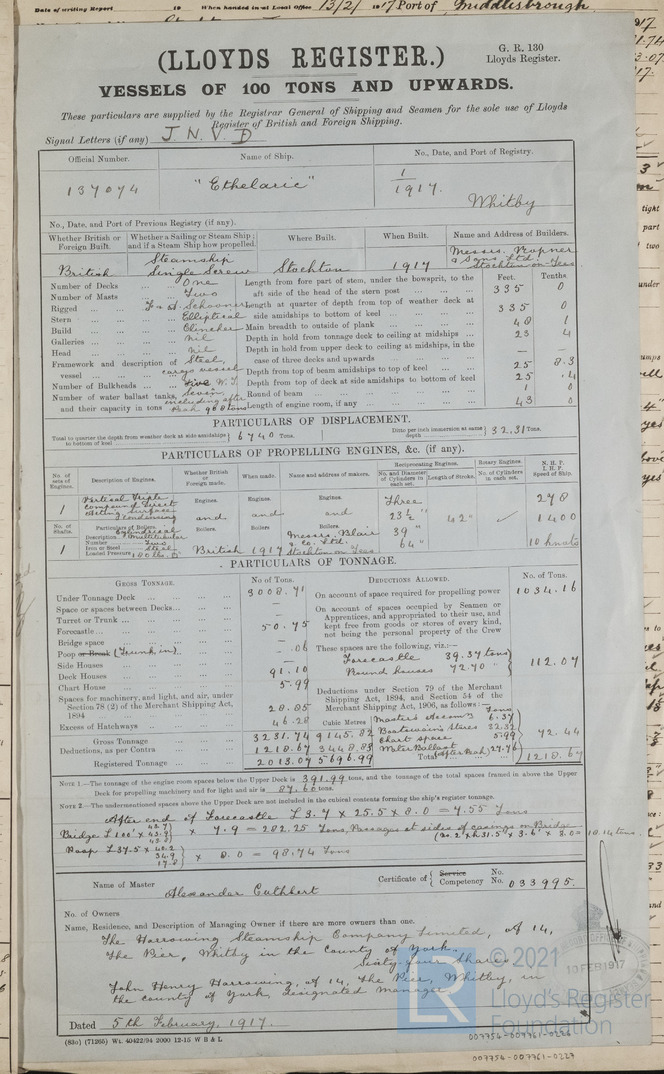 Date of writing Report 19 When handed in at Local Office 13/2/1917 Port of Middlesbrough
(LLOYDS REGISTER.)
G. R. 130
Lloyds Register.
VESSELS OF 100 TONS AND UPWARDS.
These particulars are supplied by the Registrar General of Shipping and Seamen for the sole use of Lloyds
Register of British and Foreign Shipping.
Signal Letters (if any) J. N. V. D
Official Number. Name of Ship. No., Date, and Port of Registry.
137074 "Ethelaric" 1/1917. Whitby
No., Date, and Port of Previous Registry (if any).
Whether British or Foreign Built. Whether a Sailing or Steam Ship; and if a Steam Ship how propelled. Where Built. When Built. Name and Address of Builders.
British Steamship Single Screw Stockton 1917 Messrs. Ropner & Sons Ltd. Stockton on Tees
Feet. Tenths.
Number of Decks ... One Length from fore part of stem, under the bowsprit, to the aft side of the head of the stern post ... 335 0
Number of Masts ... Two
Rigged ... F & A. Schooner Length at quarter of depth from top of weather deck at side amidships to bottom of keel ... 335 0
Stern ... Elliptical
Build ... Clincher Main breadth to outside of plank ... 48 1
Galleries ... nil Depth in hold from tonnage deck to ceiling at midships ... 23 4
Head ... nil Depth in hold from upper deck to ceiling at midships, in the case of three decks and upwards — —
Framework and description of vessel ... Steel, cargo vessel Depth from top of beam amidships to top of keel ... 25 8.3
Number of Bulkheads ... Five W.T. Depth from top of deck at side amidships to bottom of keel 25 .4
Number of water ballast tanks, and their capacity in tons Seven, including after Peak 908 tons Round of beam ... 1 0
Length of engine room, if any ... 43 0
PARTICULARS OF DISPLACEMENT.
Total to quarter the depth from weather deck at side amidships to bottom of keel 6740 Tons. Ditto per inch immersion at same depth 32.31 Tons.
PARTICULARS OF PROPELLING ENGINES, &c. (if any).
No. of sets of Engines. Description of Engines. Whether British or Foreign made. When made. Name and address of makers. Reciprocating Engines. No. and Diameter of Cylinders in each set. Length of Stroke. Rotary Engines. No. of Cylinders in each set. N.H.P. I.H.P. Speed of Ship.
1 Vertical Triple Compound Direct Acting Surface Condensing Engines. Engines. Engines. Three 278
and and and 23½" 42" 1400
No. of Shafts. Particulars of Boilers. Boilers Boilers Boilers. 39"
1 Description Cylindrical Multitubular Number Two Iron or Steel Steel Loaded Pressure 180 lbs. British 1917 Messrs. Blair & Co. Ltd. Stockton on Tees 64" 10 knots
PARTICULARS OF TONNAGE.
GROSS TONNAGE. No of Tons. DEDUCTIONS ALLOWED. No. of Tons.
Under Tonnage Deck ... 3008.71 On account of space required for propelling power 1034.16
Space or spaces between Decks... — On account of spaces occupied by Seamen or Apprentices, and appropriated to their use, and kept free from goods or stores of every kind, not being the personal property of the Crew
Turret or Trunk ... —
Forecastle ... 50.75
Bridge space ... — These spaces are the following, viz.:—
Poop or Break (Trunk in) ... .06 Forecastle 39.37 tons
Side Houses ... — Round houses 72.70 " 112.07
Deck Houses ... 91.10
Chart House ... 5.99 Deductions under Section 79 of the Merchant Shipping Act, 1894, and Section 54 of the Merchant Shipping Act, 1906, as follows:—
Spaces for machinery, and light, and air, under Section 78 (2) of the Merchant Shipping Act, 1894 ... 28.85
Tons
Excess of Hatchways ... 46.28 Cubic Metres Master's Accom. 6.37
Gross Tonnage ... 3231.74 9145.82 Boatswain's Stores 32.32
Deductions, as per Contra ... 1218.67 3448.83 Chart space 5.99 72.44
Registered Tonnage ... 2013.07 5696.99 Water Ballast (After Peak) 27.76 Total 1218.67
NOTE 1.—The tonnage of the engine room spaces below the Upper Deck is 391.99 tons, and the tonnage of the total spaces framed in above the Upper
Deck for propelling machinery and for light and air is 87.60 tons.
NOTE 2.—The undermentioned spaces above the Upper Deck are not included in the cubical contents forming the ship's register tonnage.
After end of Forecastle L 3.7 x 25.5 x 8.0 = 7.55 Tons
Bridge L 100' x x 7.9 = 282.25 Tons, Passages at sides of casings on Bridge
18.14 tons.
Poop L 37.5 x 40.2 34.9 17.8 x 8.0 = 98.74 Tons
Name of Master Alexander Cuthbert Certificate of Service Competency No. No. 033995.
No. of Owners
Name, Residence, and Description of Managing Owner if there are more owners than one.
The Harrowing Steamship Company Limited, of 14,
The Pier, Whitby in the County of York.
Sixty four Shares
John Henry Harrowing, of 14, The Pier, Whitby, in
the county of York, designated manager
Dated 5th February, 1917.
(830) (71265) Wt. 40422/94 2000 12-15 W B & L
10 FEB 1917
© 2021
Lloyd's Register
Foundation
LR
007756-007761-0226
007756-007761-0227